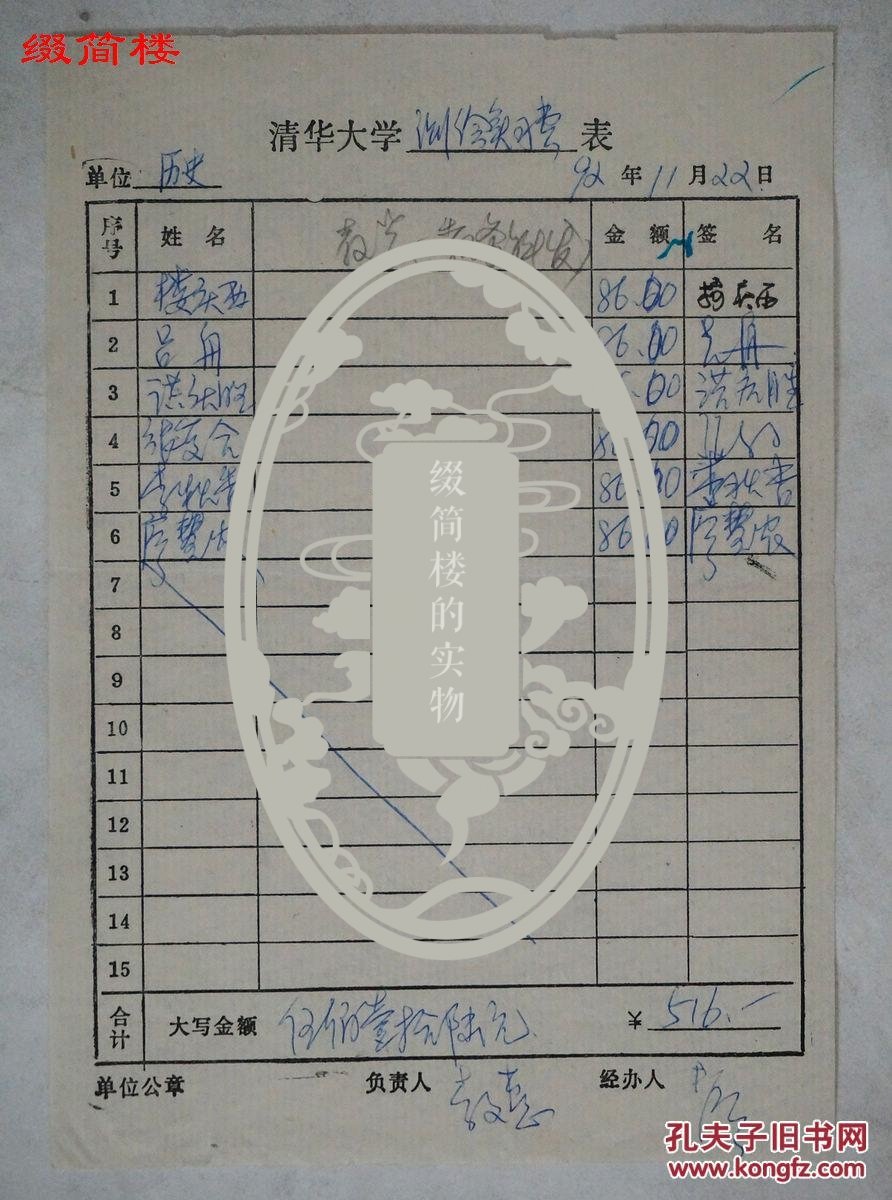 缀简楼
清华大学 测绘实习费 表
单位 历史 92 年 11 月 22 日
序号 姓名 金额 签名
1 楼庆西 86.00 楼庆西
2 吕舟 86.00 吕舟
3 86.00
4 86.00
5 李秋香 86.00 李秋香
6 86.00
7
8
9
10
11
12
13
14
15
合计 大写金额 伍佰壹拾陆元 ¥ 516.—
单位公章 负责人 经办人
缀简楼的实物
孔夫子旧书网
www.kongfz.com